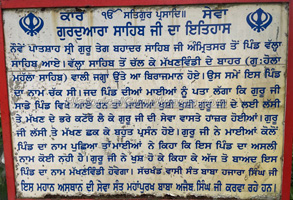 ਕਾਰ ੴ ਸਤਿਗੁਰ ਪ੍ਰਸਾਦਿ॥ ਸੇਵਾ
ਗੁਰਦੁਆਰਾ ਸਾਹਿਬ ਜੀ ਦਾ ਇਤਿਹਾਸ
ਨੌਵੇਂ ਪਾਤਸ਼ਾਹ ਸ੍ਰੀ ਗੁਰੂ ਤੇਗ ਬਹਾਦਰ ਸਾਹਿਬ ਜੀ ਅੰਮ੍ਰਿਤਸਰ ਤੋਂ ਪਿੰਡ ਵੱਲਾ
ਸਾਹਿਬ ਆਏ। ਵੱਲਾ ਸਾਹਿਬ ਤੋਂ ਚੱਲ ਕੇ ਮੱਖਣਵਿੰਡੀ ਦੇ ਬਾਹਰ (ਗੁ:ਹੋਲਾ
ਮੁਹੱਲਾ ਸਾਹਿਬ) ਵਾਲੀ ਜਗ੍ਹਾ ਉੱਤੇ ਆ ਬਿਰਾਜਮਾਨ ਹੋਏ। ਉਸ ਸਮੇਂ ਇਸ ਪਿੰਡ
ਦਾ ਨਾਮ ਚੱਕ ਸੀ। ਜਦ ਪਿੰਡ ਦੀਆਂ ਮਾਈਆਂ ਨੂੰ ਪਤਾ ਲੱਗਾ ਕਿ ਗੁਰੂ ਜੀ
ਸਾਡੇ ਪਿੰਡ ਵਿਖੇ ਆਏ ਹਨ ਤਾਂ ਮਾਈਆਂ ਖੁਸ਼ੀ ਖੁਸ਼ੀ ਗੁਰੂ ਜੀ ਦੇ ਲਈ ਲੱਸੀ
ਤੇ ਮੱਖਣ ਦੇ ਭਰੇ ਕਟੋਰੇ ਲੈ ਕੇ ਗੁਰੂ ਜੀ ਦੀ ਸੇਵਾ ਵਾਸਤੇ ਹਾਜ਼ਰ ਹੋਈਆਂ। ਗੁਰੂ
ਜੀ ਲੱਸੀ ਤੇ ਮੱਖਣ ਛਕ ਕੇ ਬਹੁਤ ਪ੍ਰਸੰਨ ਹੋਏ। ਗੁਰੂ ਜੀ ਨੇ ਮਾਈਆਂ ਕੋਲੋਂ
ਪਿੰਡ ਦਾ ਨਾਮ ਪੁਛਿਆ ਤਾਂ ਮਾਈਆਂ ਨੇ ਕਿਹਾ ਕਿ ਇਸ ਪਿੰਡ ਦਾ ਅਸਲੀ
ਨਾਮ ਕੋਈ ਨਹੀਂ ਹੈ। ਗੁਰੂ ਜੀ ਨੇ ਖੁਸ਼ ਹੋ ਕੇ ਕਿਹਾ ਕਿ ਅੱਜ ਤੋਂ ਬਾਅਦ ਇਸ
ਪਿੰਡ ਦਾ ਨਾਮ ਮੱਖਣਵਿੰਡੀ ਹੋਵੇਗਾ। ਸੱਚਖੰਡ ਵਾਸੀ ਸੰਤ ਬਾਬਾ ਹਜਾਰਾ ਸਿੰਘ ਜੀ
ਇਸ ਮਹਾਨ ਅਸਥਾਨ ਦੀ ਸੇਵਾ ਸੰਤ ਮਹਾਂਪੁਰਖ ਬਾਬਾ ਅਜੈਬ ਸਿੰਘ ਜੀ ਕਰਵਾ ਰਹੇ ਹਨ।